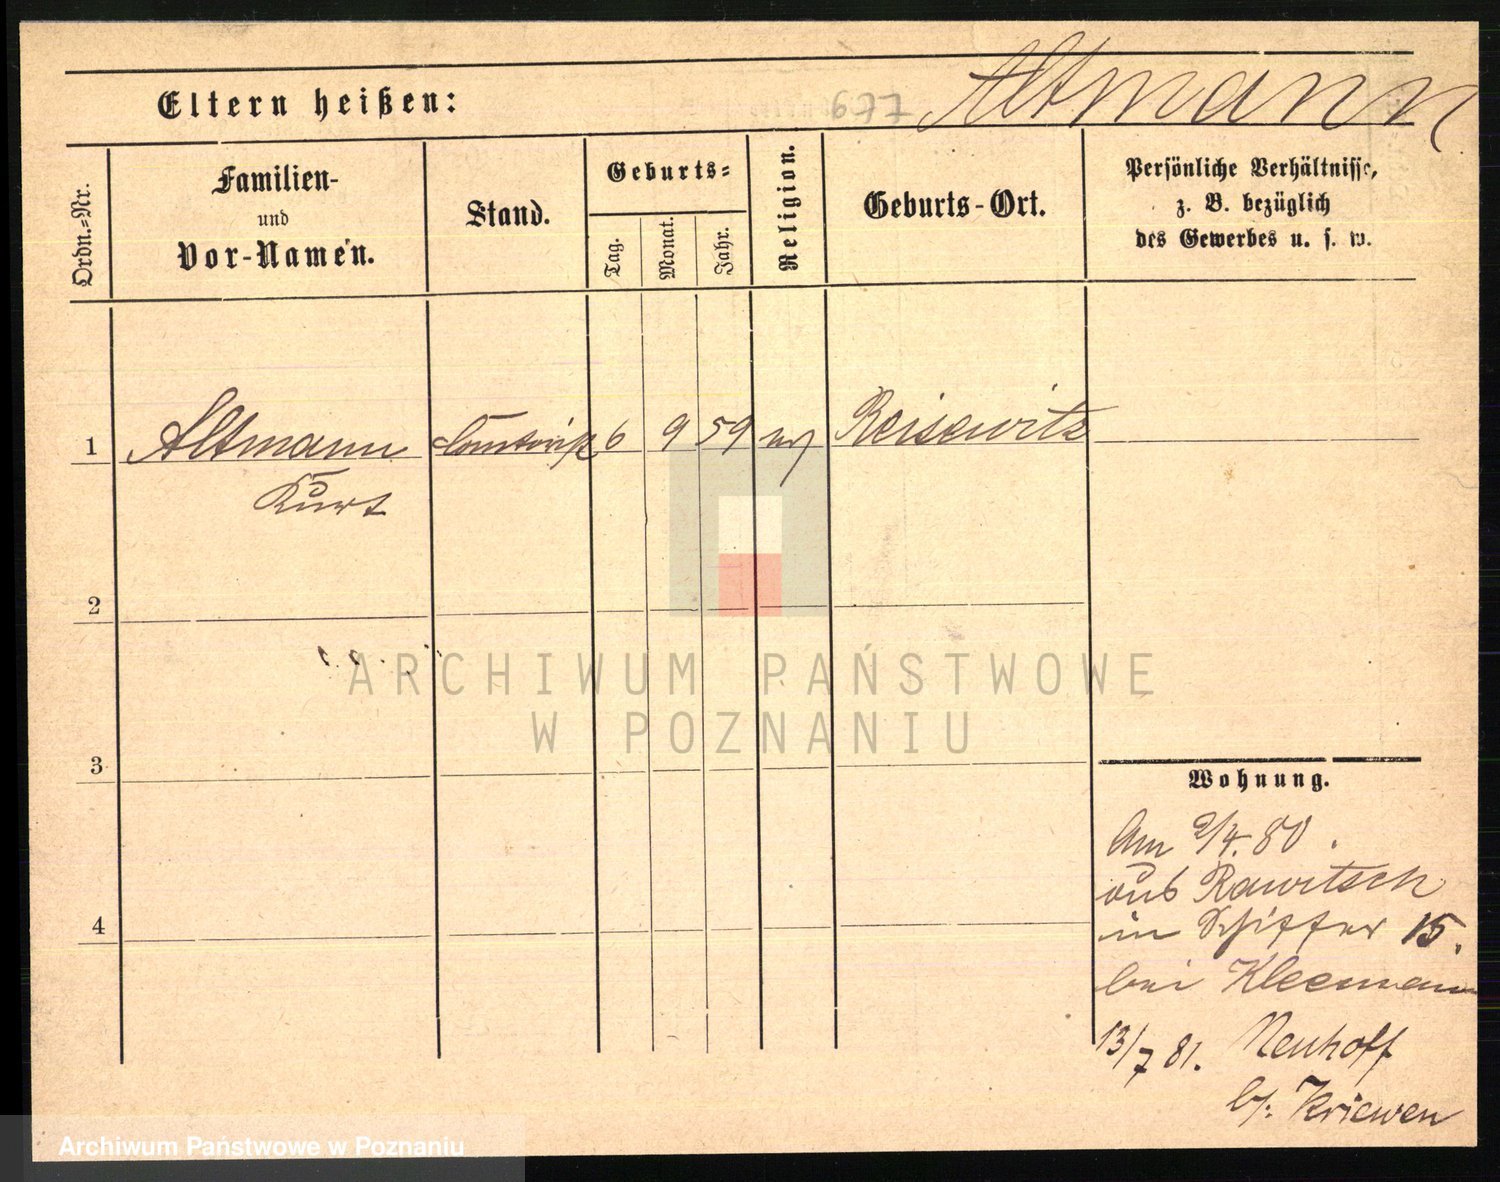 Eltern heißen:
677
Altmann
Ordn.=Nr.
Familien-
und
Vor-Namen.
Stand.
Geburts=
Tag.
Monat.
Jahr.
Religion.
Geburts-Ort.
Persönliche Verhältnisse,
z. B. bezüglich
des Gewerbes u. s. w.
1
Altmann
Kurt
6
9
59
Reisewitz
2
3
4
Wohnung.
Am 2/4. 80.
aus Rawitsch
in Schiffer 15.
bei Kleemann
13/7 81. Neuhoff
b/. Kriewen
ARCHIWUM PAŃSTWOWE
W POZNANIU
Archiwum Państwowe w Poznaniu